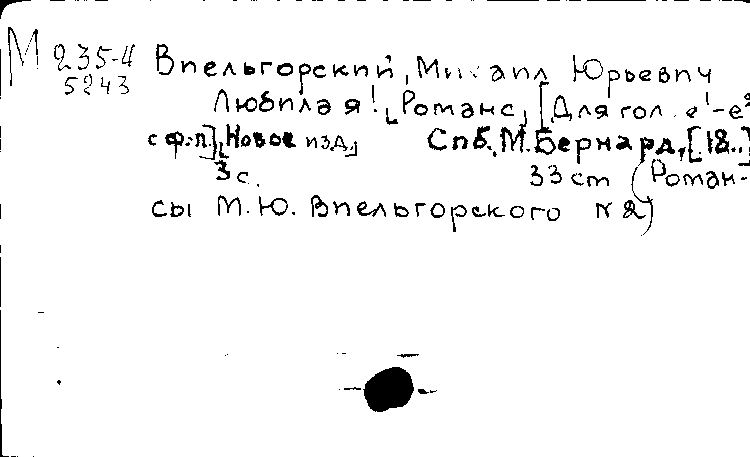 М 235-4 Виельгорский, Михаил Юрьевич
5243
Любила я! [Романс] [Для гол. e¹-e²
с ф.-п.], [Новое изд.] Спб, М. Бернард, [18..]
3 с. 33 cm (Роман-
сы М.Ю. Виельгорского N 2)